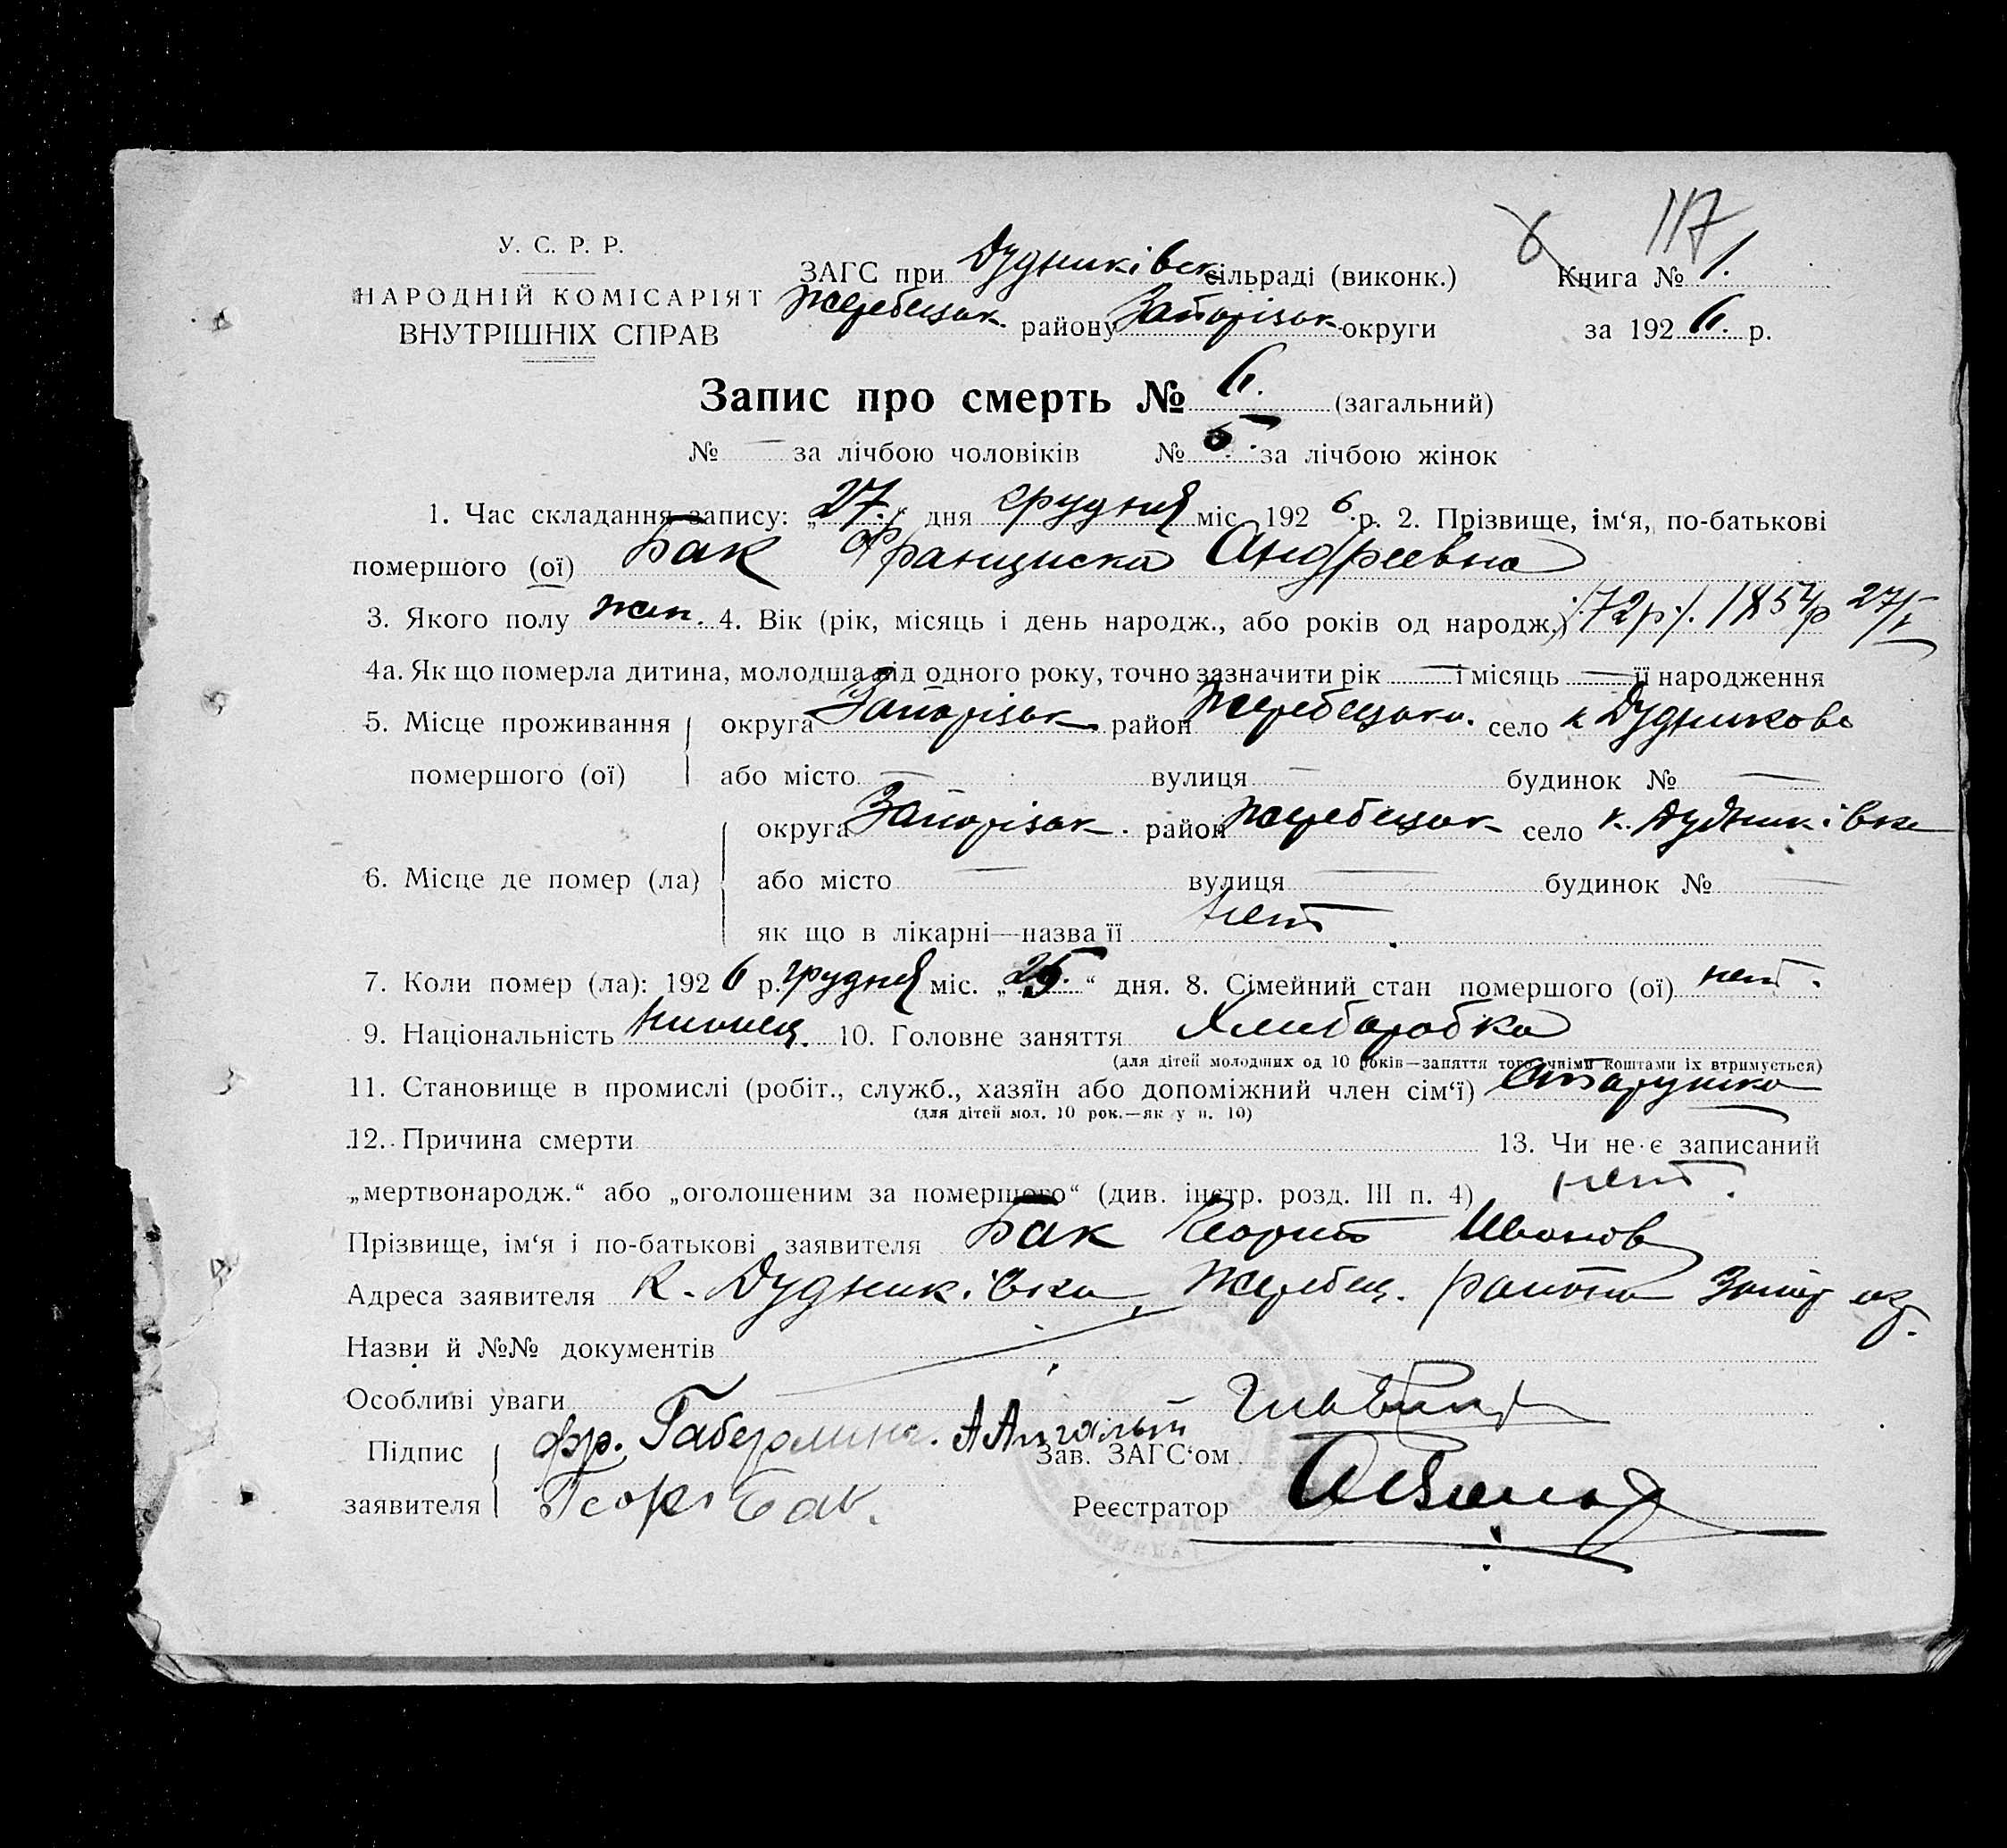 117
У. С. Р. Р.
НАРОДНІЙ КОМІСАРІЯТ
ВНУТРІШНІХ СПРАВ
ЗАГС при Дудниківск сільраді (виконк.)
Жеребецьк. району Запорізьк округи
Книга № 1.
за 1926. р.
Запис про смерть № 6. (загальний)
№ — за лічбою чоловіків № 5 за лічбою жінок
1. Час складання запису: „27.“ дня грудня міс. 1926.р. 2. Прізвище, ім‘я, по-батькові
помершого (ої) Бак Франциска Андреевна
3. Якого полу жен. 4. Вік (рік, місяць і день народж., або років од народж.) /72р/. 1854р 27/V
4а. Як що померла дитина, молодша від одного року, точно зазначити рік — і місяць — її народження
5. Місце проживання помершого (ої) округа Запорізьк. район Жеребецьк. село к Дудниково
або місто — вулиця — будинок № —
6. Місце де помер (ла) округа Запорізьк. район Жеребецьк село к. Дудниківка
або місто — вулиця — будинок № —
як що в лікарні—назва її нет
7. Коли помер (ла): 1926 р. грудня міс. „25.“ дня. 8. Сімейний стан помершого (ої) нет.
9. Національність 10. Головне заняття Хлиборобка
(для дітей молодших од 10 років—заняття того, чиїми коштами їх втримується)
11. Становище в промислі (робіт., служб., хазяїн або допоміжний член сім‘ї) Старушка
(для дітей мол. 10 рок.—як у п. 10)
12. Причина смерти 13. Чи не є записаний
„мертвонародж.“ або „оголошеним за помершого“ (див. інстр. розд. III п. 4) нет.
Прізвище, ім‘я і по-батькові заявителя Бак Иванов
Адреса заявителя к. Дудниківка, Жеребец. району Запор окр.
Назви й №№ документів
Особливі уваги
Підпис заявителя фр. Зав. ЗАГС‘ом
Бак. Реєстратор